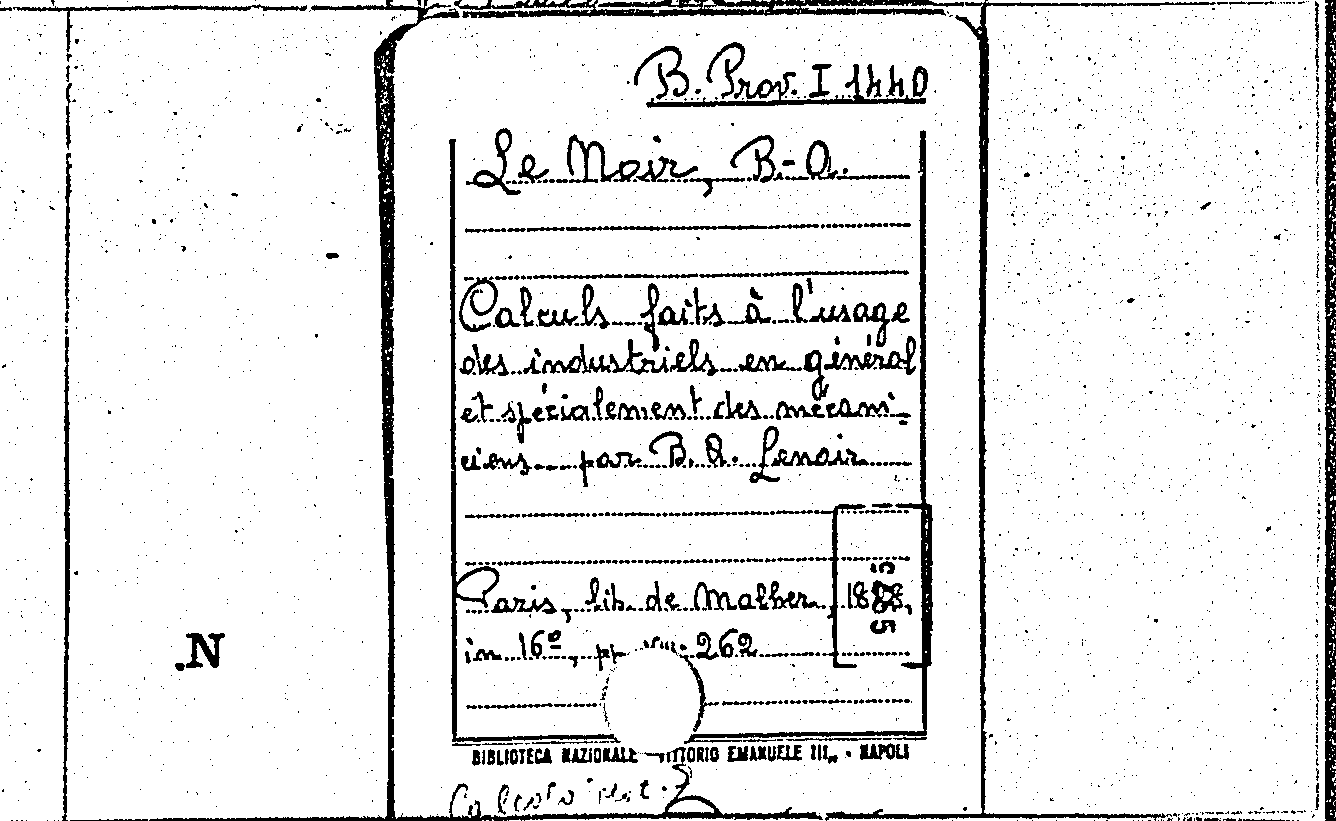 B. Prov. I 1440
Le Noir, B.-A.
Calculs faits à l'usage
des industriels en général
et spécialement des mécani-
ciens par B. A. Lenoir
Paris, lib. de Malher,
in 16º, pp. VIII. 262
BIBLIOTECA NAZIONALE VITTORIO EMANUELE III,, - NAPOLI
Calcolo
N.